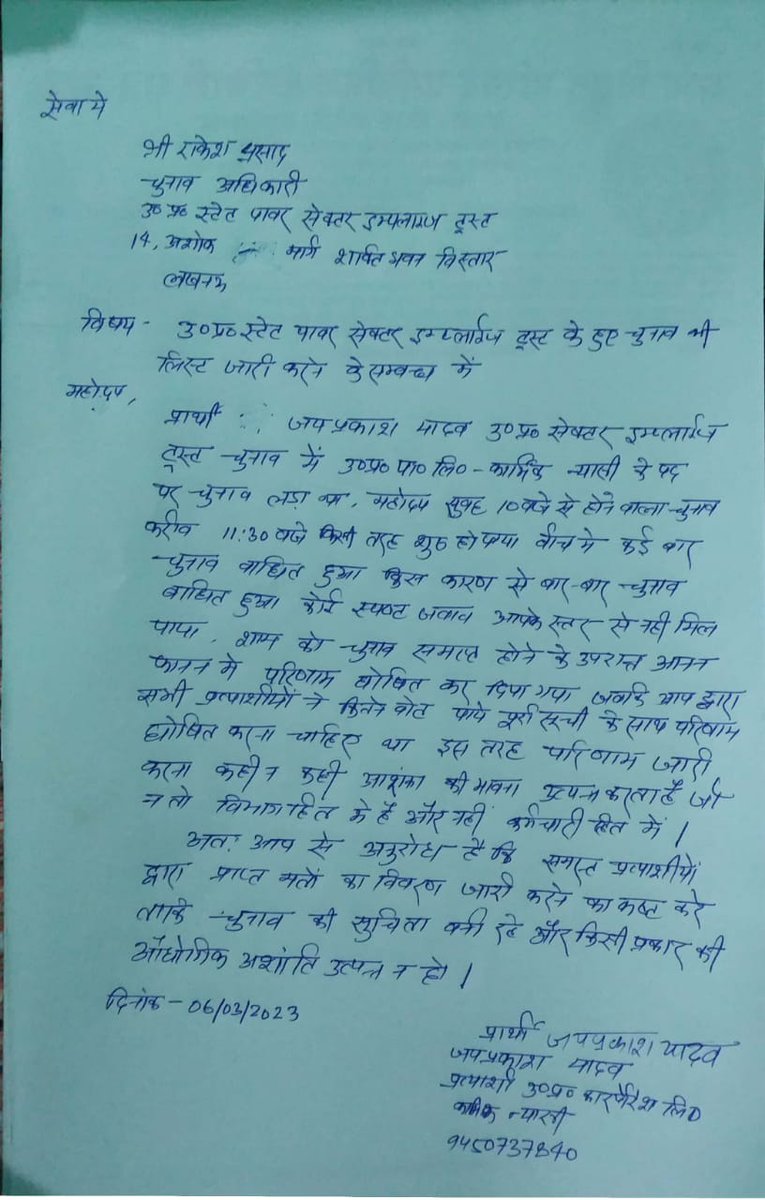 सेवा मे
श्री राकेश प्रसाद
चुनाव अधिकारी
उ०प्र० स्टेट पावर सेक्टर इम्पलाईज ट्रस्ट
14, अशोक मार्ग शक्ति भवन विस्तार
लखनऊ
विषय - उ०प्र० स्टेट पावर सेक्टर इम्प्लाईज ट्रस्ट के हुए चुनाव की
लिस्ट जारी करने के सम्बन्ध में
महोदय,
प्रार्थी जयप्रकाश यादव उ०प्र० सेक्टर इम्प्लाईज
ट्रस्ट चुनाव में उ०प्र० पा० लि० - कार्मिक न्यासी के पद
पर चुनाव लड़ा था, महोदय सुबह 10 बजे से होने वाला चुनाव
करीब 11:30 बजे किसी तरह शुरु हो पाया बीच मे कई बार
चुनाव बाधित हुआ किस कारण से बार-बार चुनाव
बाधित हुआ कोई स्पष्ट जवाब आपके स्तर से नही मिल
पाया, शाम को चुनाव समाप्त होने के उपरान्त आनन
फानन मे परिणाम घोषित कर दिया गया जबकि आप द्वारा
सभी प्रत्याशीयों ने कितने वोट पाये पूरी सूची के साथ परिणाम
घोषित करना चाहिए था इस तरह परिणाम जारी
करना कही न कही आशंका की भावना उत्पन्न करता है जो
न तो विभाग हित मे है और नहीं कर्मचारी हित में।
अतः आप से अनुरोध है कि समस्त प्रत्याशीयों
द्वारा प्राप्त मतों का विवरण जारी करने का कष्ट करे
ताकि चुनाव की सुचिता बनी रहे और किसी प्रकार की
औधोगिक अशांति उत्पन्न न हो।
दिनांक - 06/03/2023
प्रार्थी जयप्रकाश यादव
जयप्रकाश यादव
प्रत्याशी उ०प्र० कारपोरेशन लि०
कार्मिक न्यासी
9450737840